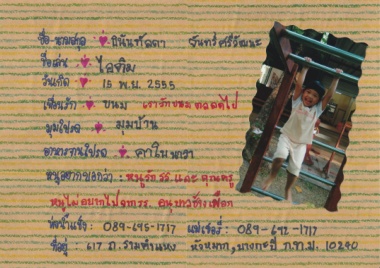 ชื่อ-นามสกุล ธนันทัลดา จันทร์ศรีวัฒนะ
ชื่อเล่น ไอติม
วันเกิด 15 พ.ย. 2555
เพื่อนรัก ขนม เรารักขนมตลอดไป
มุมโปรด มุมบ้าน
อาหารจานโปรด
หนูอยากบอกว่า : หนูรัก รร. และ คุณครู
หนูไม่อยากไปจาก รร. อนุบาลช้างเผือก
พ่อ : 089-695-1717 แม่ : 089-692-1717
ที่อยู่ : 617 ถ.รามคำแหง หัวหมาก, บางกะปิ ก.ท.ม. 10240